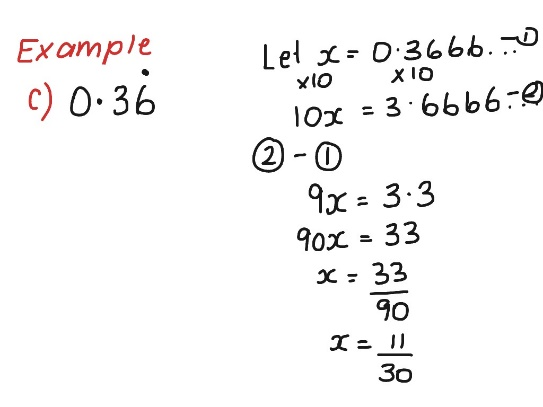 Example
c) 0·36̇
Let x = 0·3666... -①
×10 ×10
10x = 3·6666... -②
② - ①
9x = 3·3
90x = 33
x = 33/90
x = 11/30